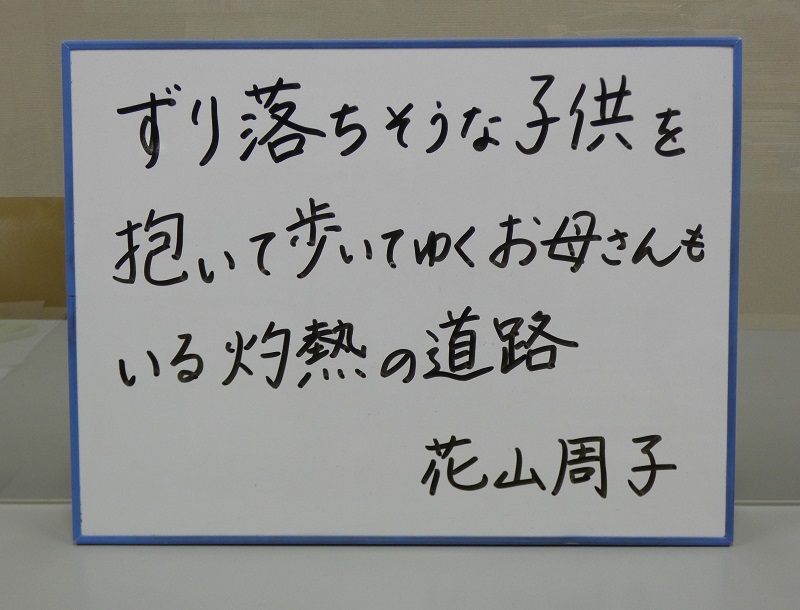 ずり落ちそうな子供を
抱いて歩いてゆくお母さんも
いる灼熱の道路
花山周子